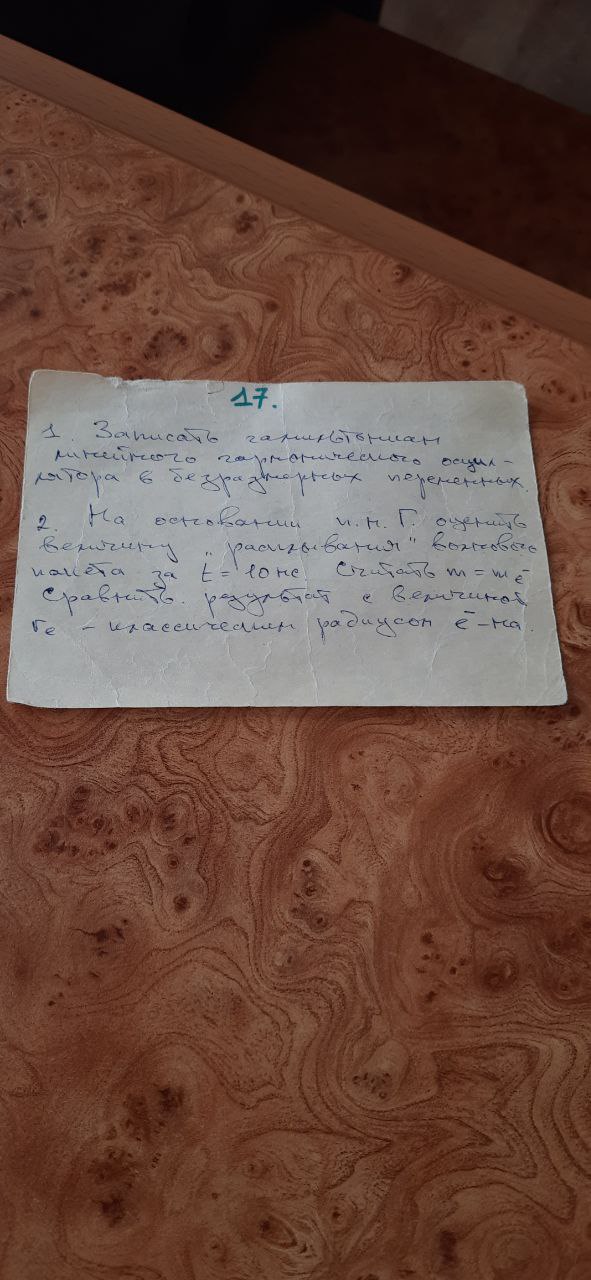 17.
1. Записать гамильтониан
линейного гармонического осцил-
лятора в безразмерных переменных.
2. На основании п.н.Г. оценить
величину "расплывания" волнового
пакета за t = 10 нс Считать m = mē
Сравнить результат с величиной
re - классическим радиусом ē-на.